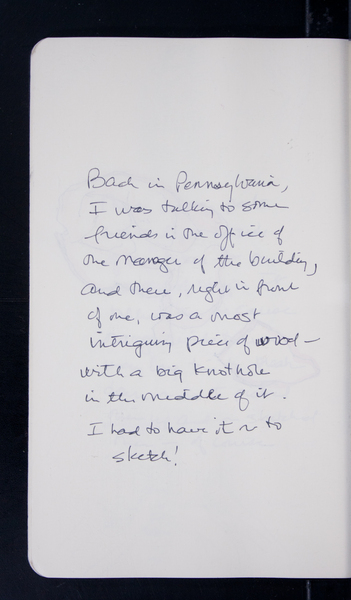 Back in Pennsylvania,
I was talking to some
friends in the office of
the manager of the building,
and there, right in front
of me, was a most
intriguing piece of wood—
with a big knothole
in the middle of it.
I had to have it to
sketch!